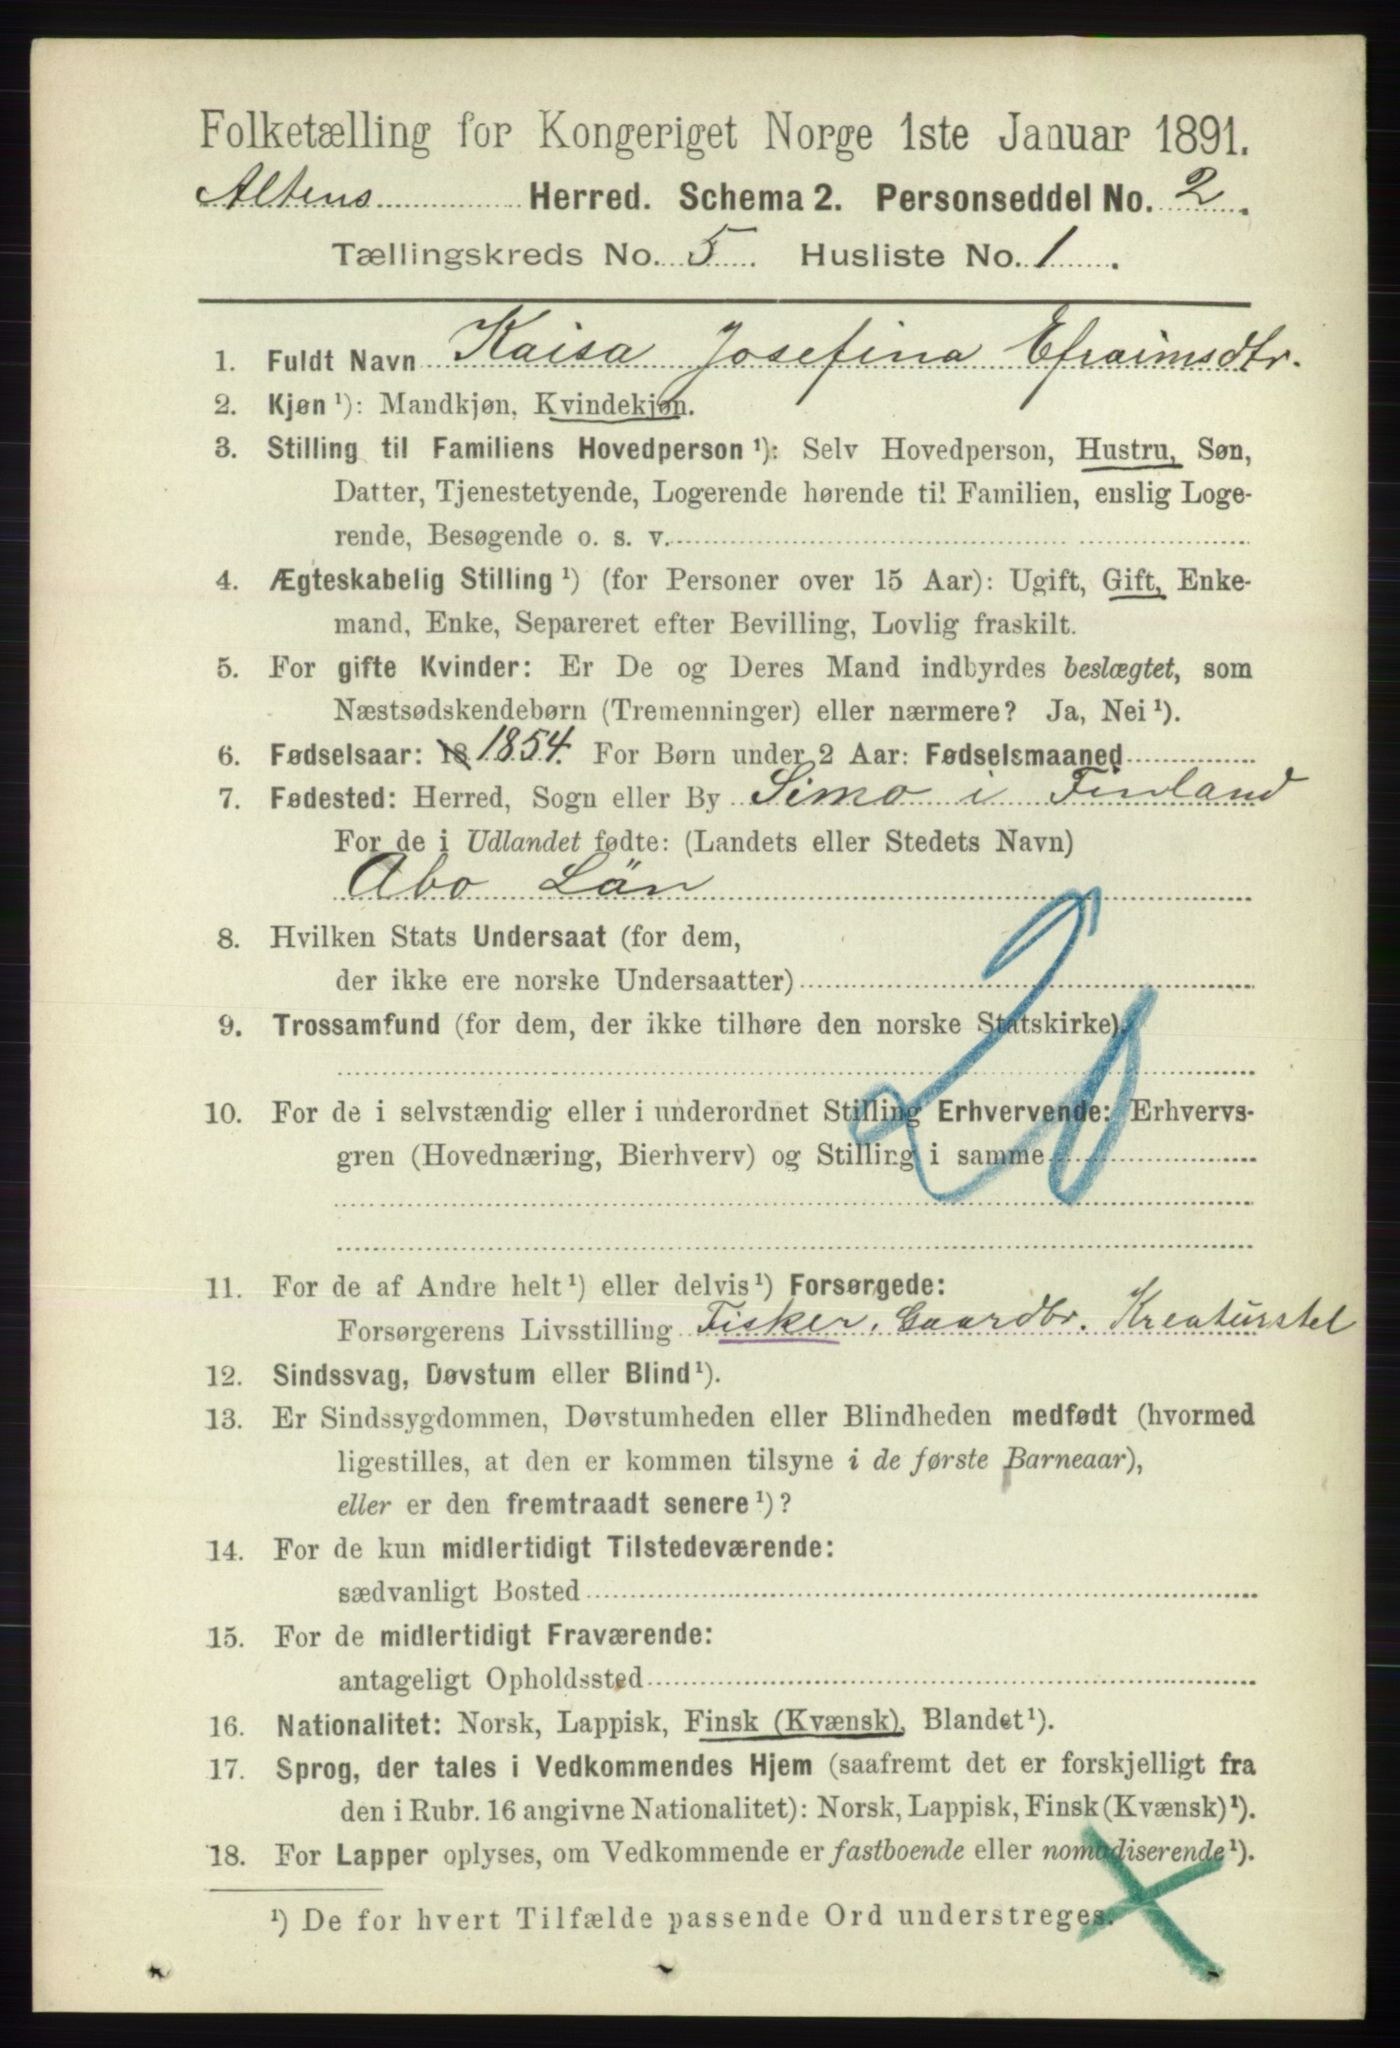 Folketælling for Kongeriget Norge 1ste Januar 1891.
Altens Herred. Schema 2. Personseddel No. 2.
Tællingskreds No. 5. Husliste No. 1.
1. Fuldt Navn Kaisa Josefina Efraimsdtr.
2. Kjøn ¹): Mandkjøn, Kvindekjøn.
3. Stilling til Familiens Hovedperson ¹): Selv Hovedperson, Hustru, Søn,
Datter, Tjenestetyende, Logerende hørende til Familien, enslig Loge-
rende, Besøgende o. s. v.
4. Ægteskabelig Stilling ¹) (for Personer over 15 Aar): Ugift, Gift, Enke-
mand, Enke, Separeret efter Bevilling, Lovlig fraskilt.
5. For gifte Kvinder: Er De og Deres Mand indbyrdes beslægtet, som
Næstsødskendebørn (Tremenninger) eller nærmere? Ja, Nei ¹).
6. Fødselsaar: 18 1854. For Børn under 2 Aar: Fødselsmaaned
7. Fødested: Herred, Sogn eller By Simo i Finland
For de i Udlandet fødte: (Landets eller Stedets Navn)
Abo Län
8. Hvilken Stats Undersaat (for dem,
der ikke ere norske Undersaatter)
9. Trossamfund (for dem, der ikke tilhøre den norske Statskirke).
10. For de i selvstændig eller i underordnet Stilling Erhvervende: Erhvervs-
gren (Hovednæring, Bierhverv) og Stilling i samme
20
11. For de af Andre helt ¹) eller delvis ¹) Forsørgede:
Forsørgerens Livsstilling Fisker, Gaardbr. Kreaturstel
12. Sindssvag, Døvstum eller Blind ¹).
13. Er Sindssygdommen, Døvstumheden eller Blindheden medfødt (hvormed
ligestilles, at den er kommen tilsyne i de første Barneaar),
eller er den fremtraadt senere ¹)?
14. For de kun midlertidigt Tilstedeværende:
sædvanligt Bosted
15. For de midlertidigt Fraværende:
antageligt Opholdssted
16. Nationalitet: Norsk, Lappisk, Finsk (Kvænsk), Blandet ¹).
17. Sprog, der tales i Vedkommendes Hjem (saafremt det er forskjelligt fra
den i Rubr. 16 angivne Nationalitet): Norsk, Lappisk, Finsk (Kvænsk) ¹).
18. For Lapper oplyses, om Vedkommende er fastboende eller nomadiserende ¹).
¹) De for hvert Tilfælde passende Ord understreges.